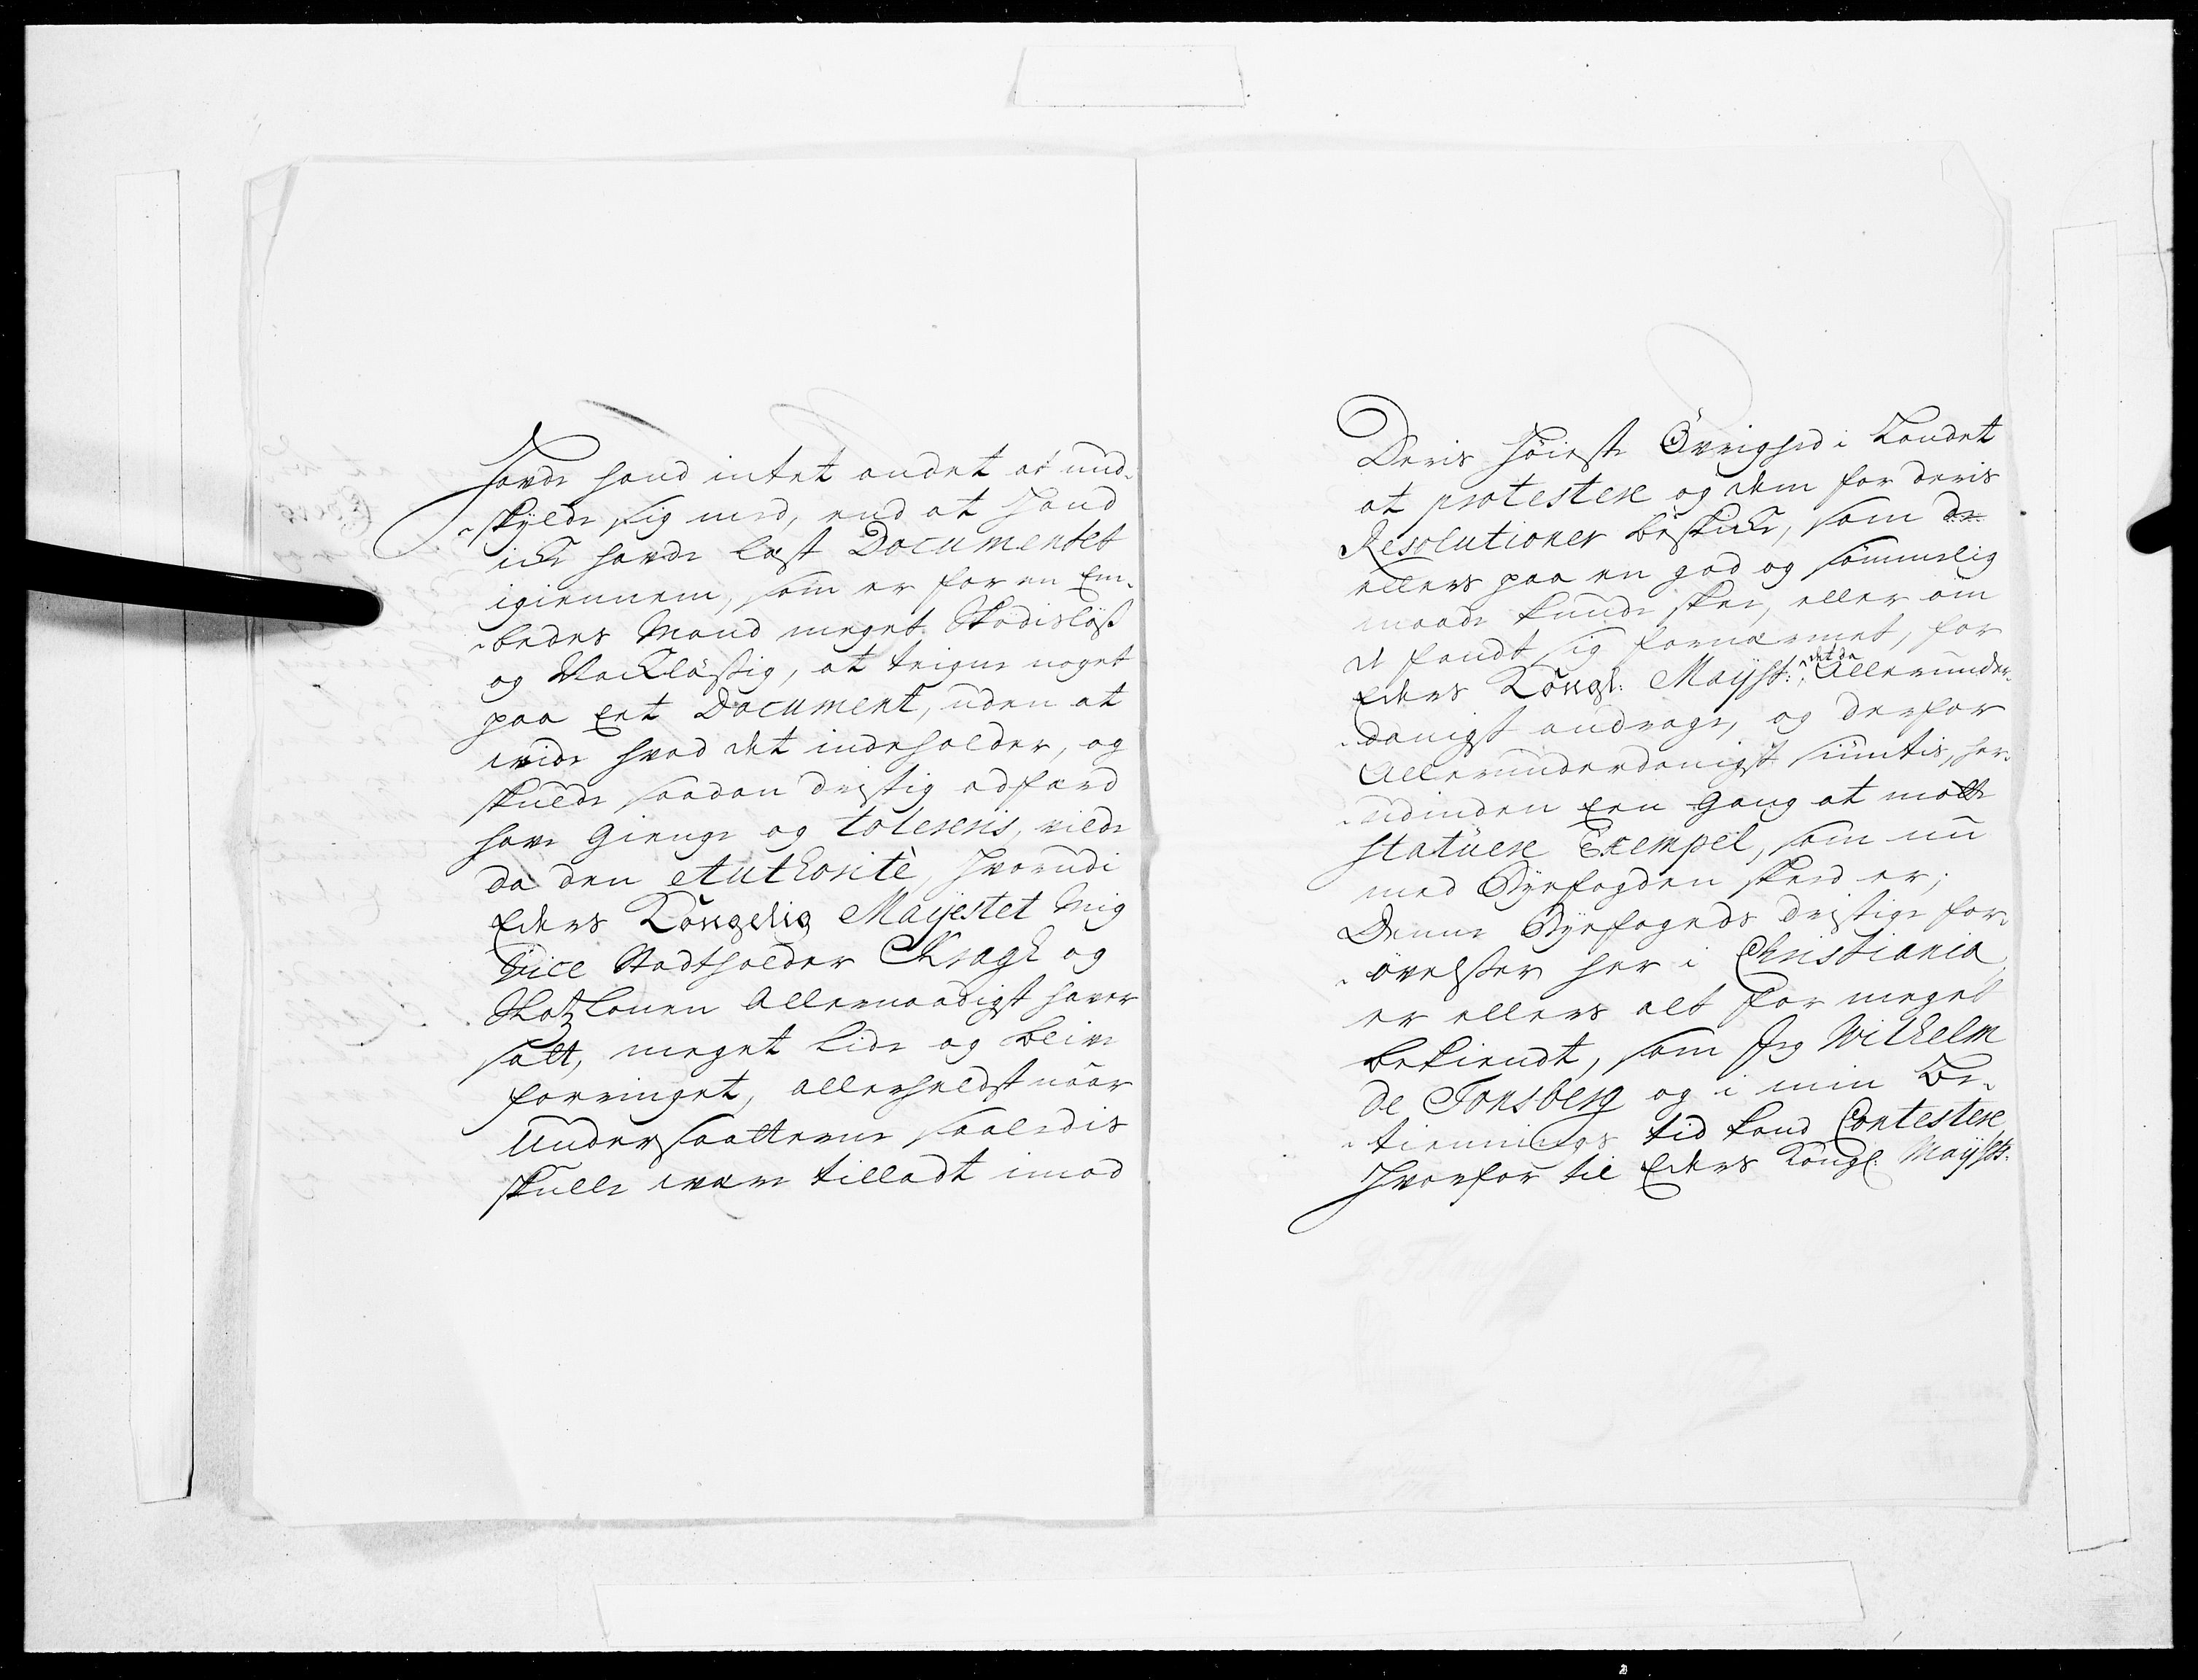 Hafde hand intet andet at und¬
skylde sig med, end at Hand
icke hafde læst Documentet
igiennem, som er for en Em¬
bedes Mand meget Skiødisløst
og Vackløstig, at teigne noget
paa eet Document, uden at
wide hvad det indeholder, og
skulde saadan dristig adfærd
have Gienge og tolereris, vilde
da den Authoritè, hvorudi
Eders Kongelig Mayestet Mig
Vice Stadtholder Kragh og
Slotzlouen Allernaadigst haver
satt, meget lide og blive
forringet, allerhelst naar
Undersaatterne saaledis
skulle være tilladt imod
Deris Høieste Øvrighed i Landet
at protestere og dem for deris
Resolutioner beskicke, som de
ellers paa en god og sømmelig
maade kunde skee, eller om
de fandt sig fornærmet, for
Eders Kongl: Mayst: det da Allerunder¬
danigst andrage, og derfor
Allerunderdanigst siuntis, her¬
udinden een Gang at matte
statuere Exempel, som nu
med Byefogden skeed er;
Denne Byefogeds dristige for¬
øvelsser her i Christiania,
er ellers alt for meget
bekiendt, som Jeg Wilhelm
de Tonsberg og i min Be¬
tiennings tid kand Contestere
Hvorfor til Eders Kongl: Maysts.